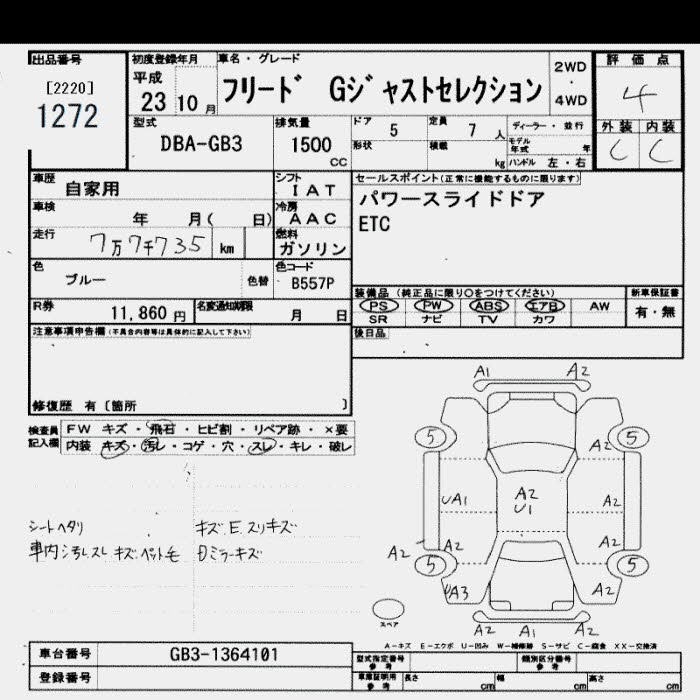 出品番号
[2220]
1272
初度登録年月
平成
23 10 月
車名・グレード
フリード Gジャストセレクション
2WD
・
4WD
評価点
4
外装 内装
C C
型式
DBA-GB3
排気量
1500
CC
ドア
5
定員
7 人
形状
積載
kg
ディーラー・並行
モデル年式 年
ハンドル 左・右
車歴
自家用
シフト
IAT
車検
年 月( 日)
冷房
AAC
走行
7万7千735 km
燃料
ガソリン
セールスポイント(正常に機能するものに限ります)
パワースライドドア
ETC
色
ブルー
色替
色コード
B557P
R券
11,860 円
名変通知期限
月 日
装備品 (純正品に限り○をつけてください)
PS PW ABS エアB AW
SR ナビ TV カワ
新車保証書
有・無
後日品
注意事項申告欄(不具合内容等は具体的に記入して下さい)
修復歴 有〔箇所 〕
検査員
記入欄
FW キズ・飛石・ヒビ割・リペア跡・×要
内装 キズ・汚レ・コゲ・穴・スレ・キレ・破レ
シートヘタリ
車内汚レスレ キズ ペット毛
キズ.E.スリキズ
Dミラーキズ
A1 A2
5 5
A2
UA1 A2 A2
U1
A2 A2 A2
5 5
UA3 A2
A2 A1 A2
スペア
A-キズ E-エクボ U-凹み W-補修跡 S-サビ C-腐食 XX-交換済
車台番号
GB3-1364101
登録番号
型式指定番号
参考
類別区分番号
参考
車庫証明用
参考
長さ cm
幅 cm
高さ cm